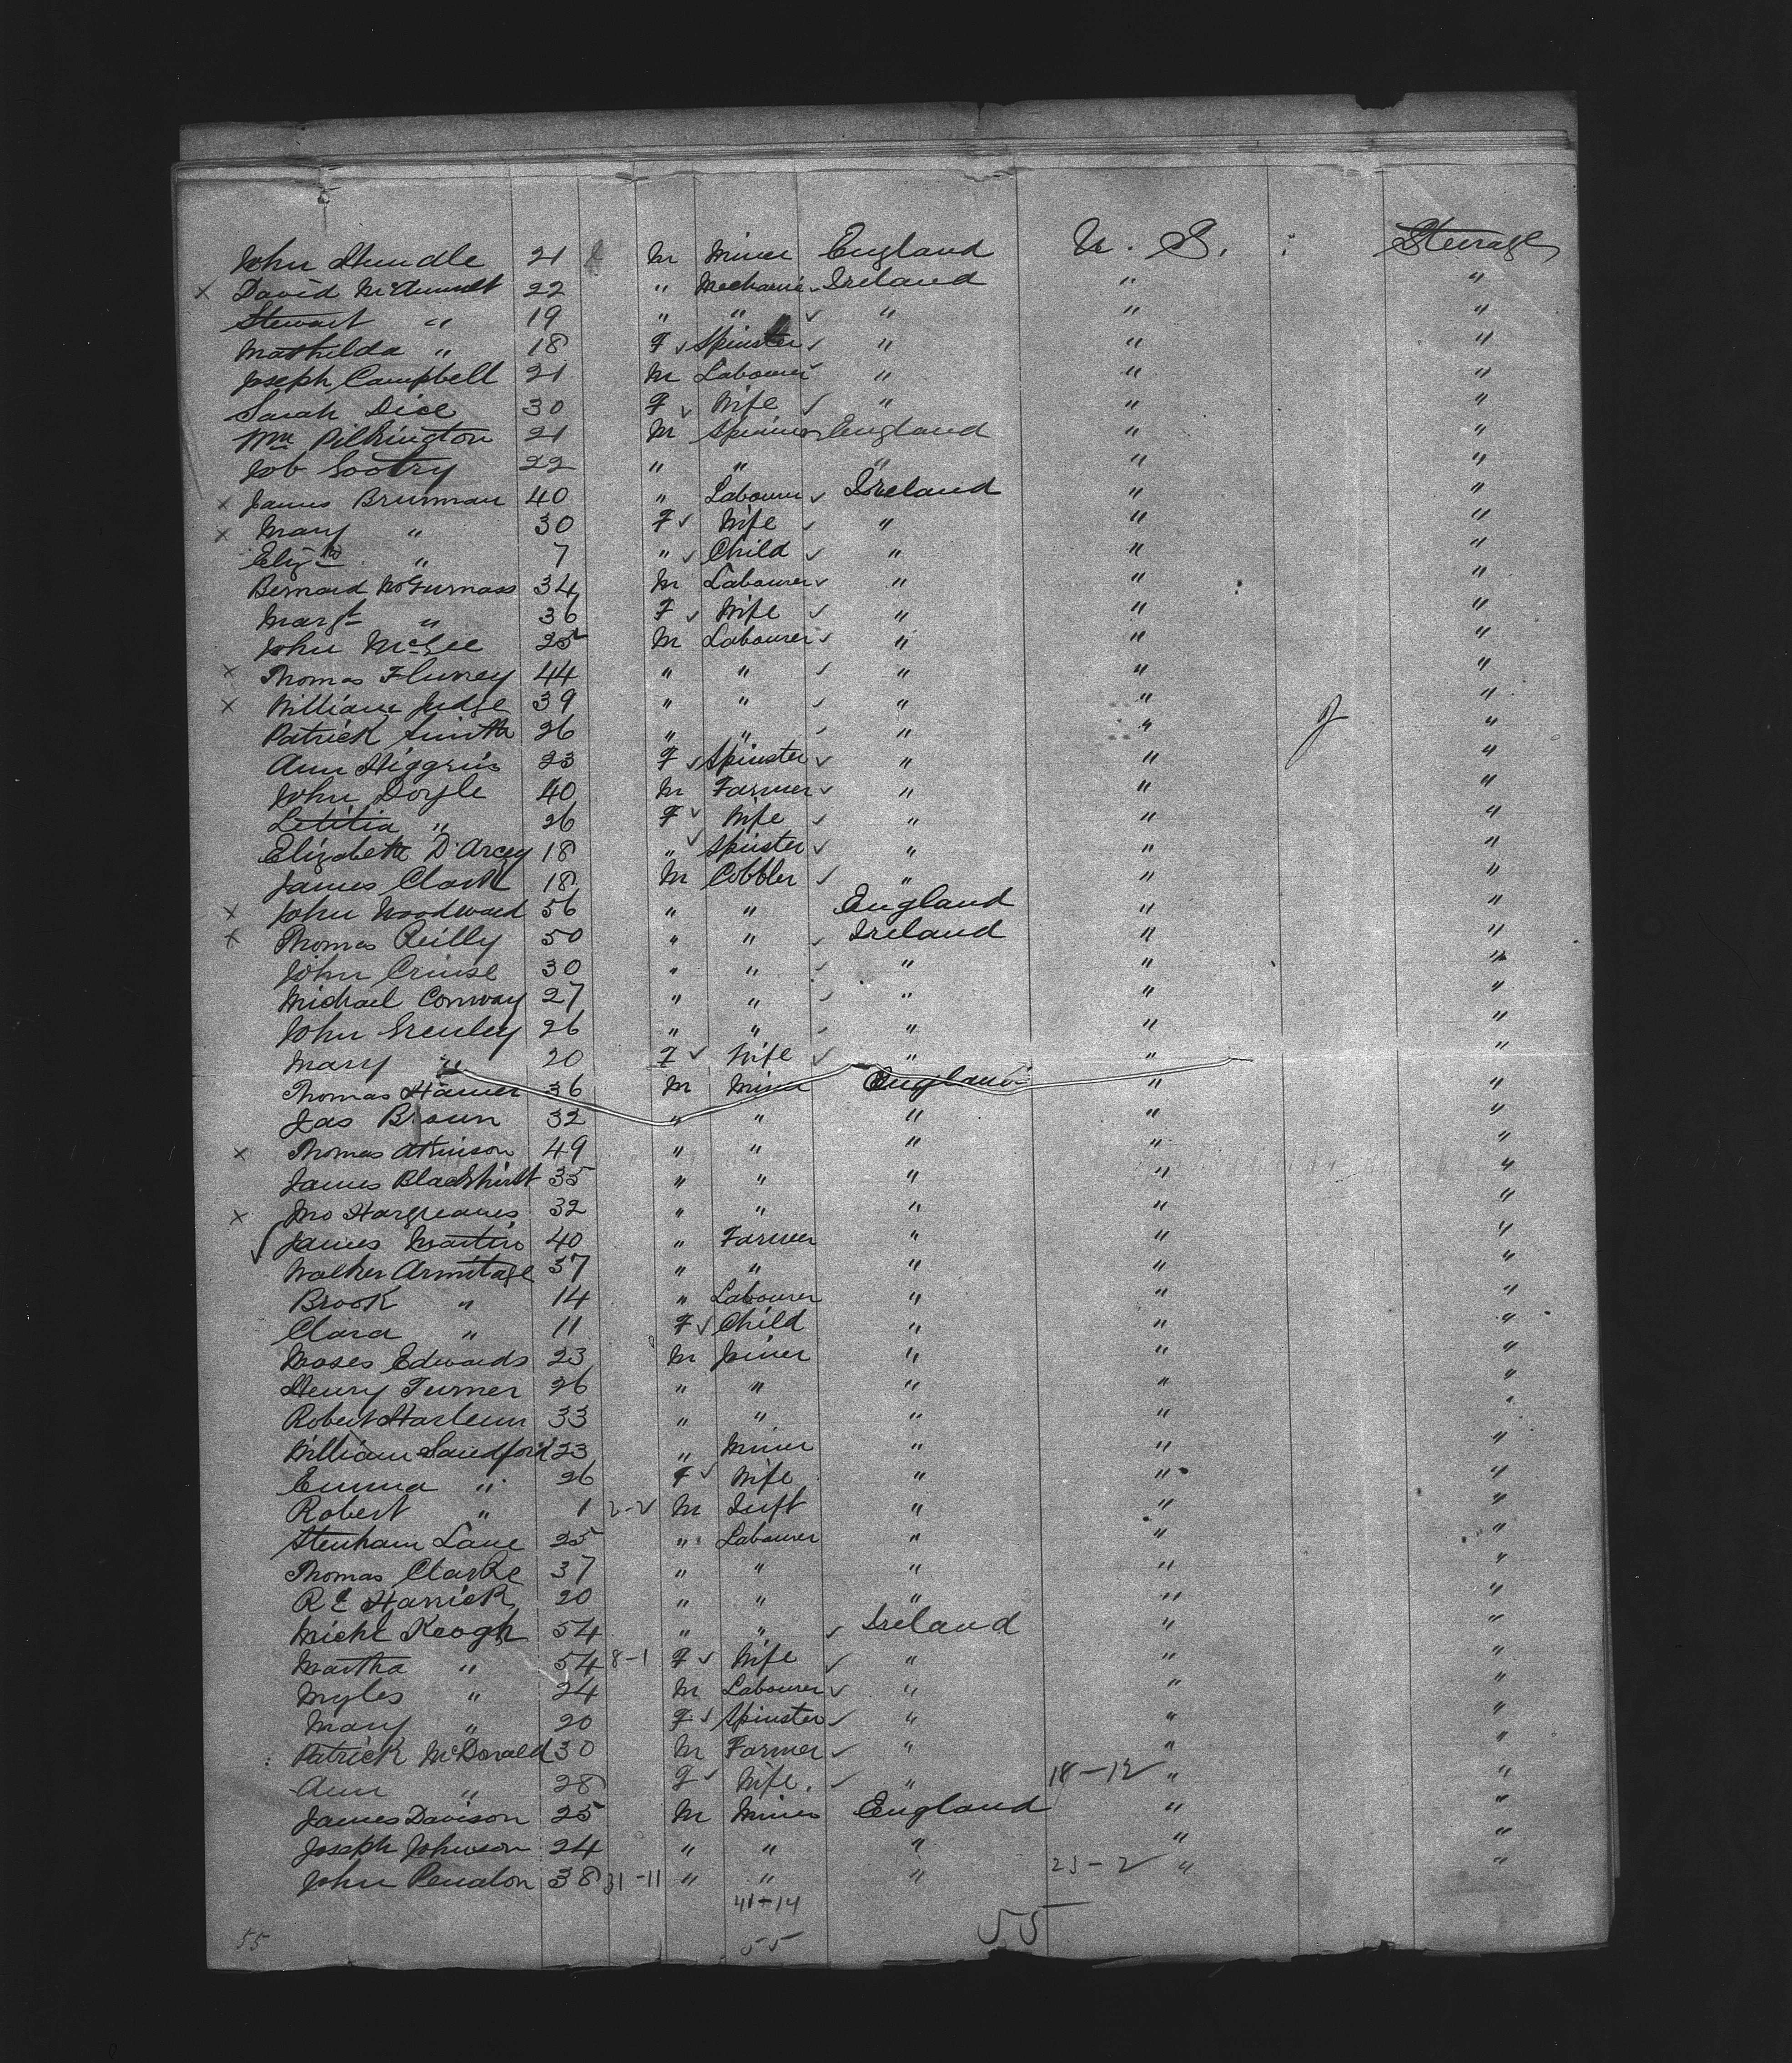 John Hundle 21 M Miner England U. S. Steerage
x David McDumott 22 " Mechanic Ireland " "
Stewart " 19 " " ✓ " " "
Mathilda " 18 F ✓ Spinster ✓ " " "
Joseph Campbell 21 M Labourer ✓ " " "
Sarah Dice 30 F ✓ Wife ✓ " " "
Wm Pilkington 21 M Spinner England " "
Job Gootry 22 " " " " "
x James Brunman 40 " Labourer ✓ Ireland " "
x Mary " 30 F ✓ Wife ✓ " " "
Elizth " 7 " ✓ Child ✓ " " "
Bernard McGurnass 34 M Labourer ✓ " " "
Margt " 36 F ✓ Wife ✓ " " "
John McGee 25 M Labourer ✓ " " "
x Thomas Flurrey 44 " " ✓ " " "
x William Judge 39 " " ✓ " " "
Patrick Smith 26 " " ✓ " " "
Ann Higgins 23 F ✓ Spinster ✓ " " "
John Doyle 40 M Farmer ✓ " " "
Letitia " 26 F ✓ Wife ✓ " " "
Elizabeth D'Arcey 18 " ✓ Spinster ✓ " " "
James Clark 18 M Cobbler ✓ " " "
x John Woodward 56 " " England " "
x Thomas Reilly 50 " " ✓ Ireland " "
John Cruise 30 " " ✓ " " "
Michael Conway 27 " " ✓ " " "
John Grenley 26 " " ✓ " " "
Mary " 20 F ✓ Wife ✓ " " "
Thomas Hamer 36 M Miner England " "
Jas Brown 32 " " " " "
x Thomas Atkinson 49 " " " " "
James Blackhirst 35 " " " " "
x Jno Hargreaves 32 " " " " "
✓ James Martin 40 " Farmer " " "
Walker Armitage 37 " " " " "
Brook " 14 " Labourer " " "
Clara " 11 F ✓ Child " " "
Moses Edwards 23 M Joiner " " "
Henry Turner 26 " " " " "
Robert Harleur 33 " " " " "
William Sandford 23 " Miner " " "
Emma " 26 F ✓ Wife " " "
Robert " 1 2-2 M Inft " " "
Stenham Lane 25 " Labourer " " "
Thomas Clarke 37 " " " " "
R E Harrick 20 " " " " "
Michl Keogh 54 " " ✓ Ireland " "
Martha " 54 8-1 F ✓ Wife ✓ " " "
Myles " 24 M Labourer ✓ " " "
Mary " 20 F ✓ Spinster ✓ " " "
Patrick McDonald 30 M Farmer ✓ " " "
Ann " 28 F ✓ Wife. ✓ " 18-12 " "
James Davison 25 M Miner England " "
Joseph Johnson 24 " " " " "
John Pendlon 38 31-11 " " " 23-2 " "
41-14
55 55 55